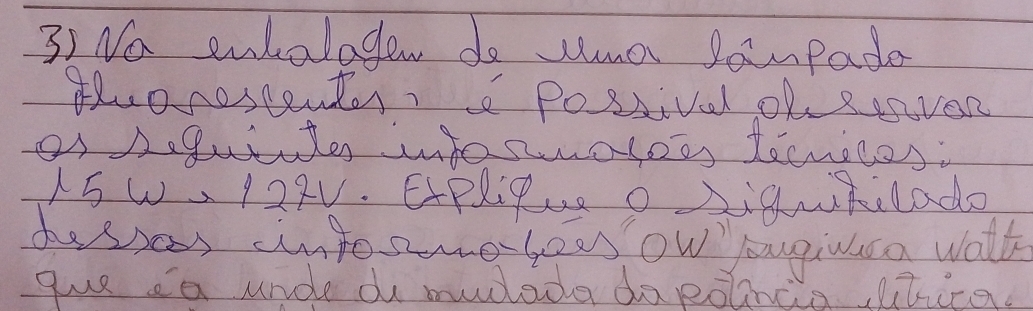 3) Na embalagem de uma lâmpada
fluorescentes, é possivel observar
as seguintes informações técnicas:
15 W e 127V. Explique o significado
dessas informações "OW" significa watts
que é a unde de mudada da potincia elitrica.